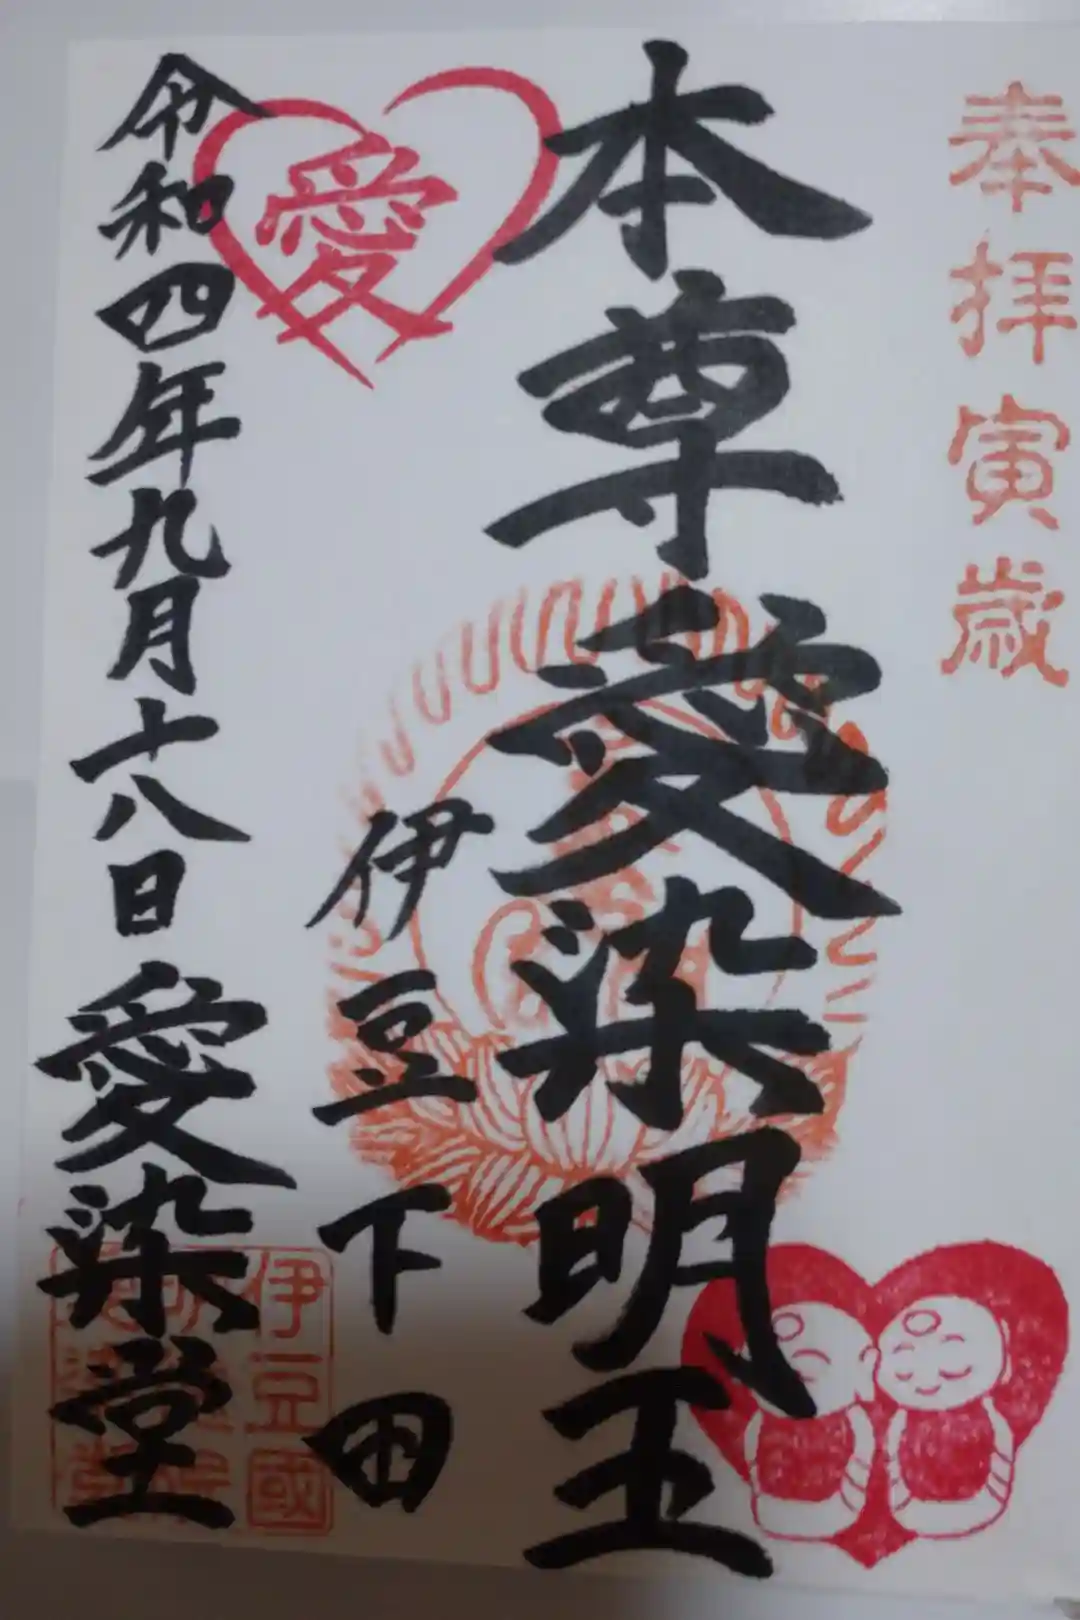 奉拝寅歳
本尊愛染明王
愛
伊豆下田
令和四年九月十八日愛染堂
伊豆國